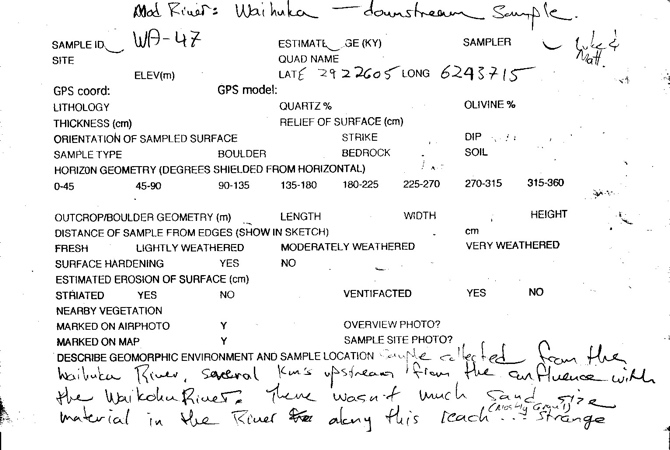 Mod River: Waihuka — downstream Sample.
SAMPLE ID WA-47 ESTIMATE GE (KY) SAMPLER Luke & Matt.
SITE QUAD NAME
ELEV(m) LATE 2922605 LONG 6243715
GPS coord: GPS model:
LITHOLOGY QUARTZ % OLIVINE %
THICKNESS (cm) RELIEF OF SURFACE (cm)
ORIENTATION OF SAMPLED SURFACE STRIKE DIP
SAMPLE TYPE BOULDER BEDROCK SOIL
HORIZON GEOMETRY (DEGREES SHIELDED FROM HORIZONTAL)
0-45 45-90 90-135 135-180 180-225 225-270 270-315 315-360
OUTCROP/BOULDER GEOMETRY (m) LENGTH WIDTH HEIGHT
DISTANCE OF SAMPLE FROM EDGES (SHOW IN SKETCH) cm
FRESH LIGHTLY WEATHERED MODERATELY WEATHERED VERY WEATHERED
SURFACE HARDENING YES NO
ESTIMATED EROSION OF SURFACE (cm)
STRIATED YES NO VENTIFACTED YES NO
NEARBY VEGETATION
MARKED ON AIRPHOTO Y OVERVIEW PHOTO?
MARKED ON MAP Y SAMPLE SITE PHOTO?
DESCRIBE GEOMORPHIC ENVIRONMENT AND SAMPLE LOCATION Sample collected from the
Waihuka River, several km's upstream from the confluence with
the Waikohu River. There wasn't much sand size
material in the River along this reach (Mostly Gravel)... strange